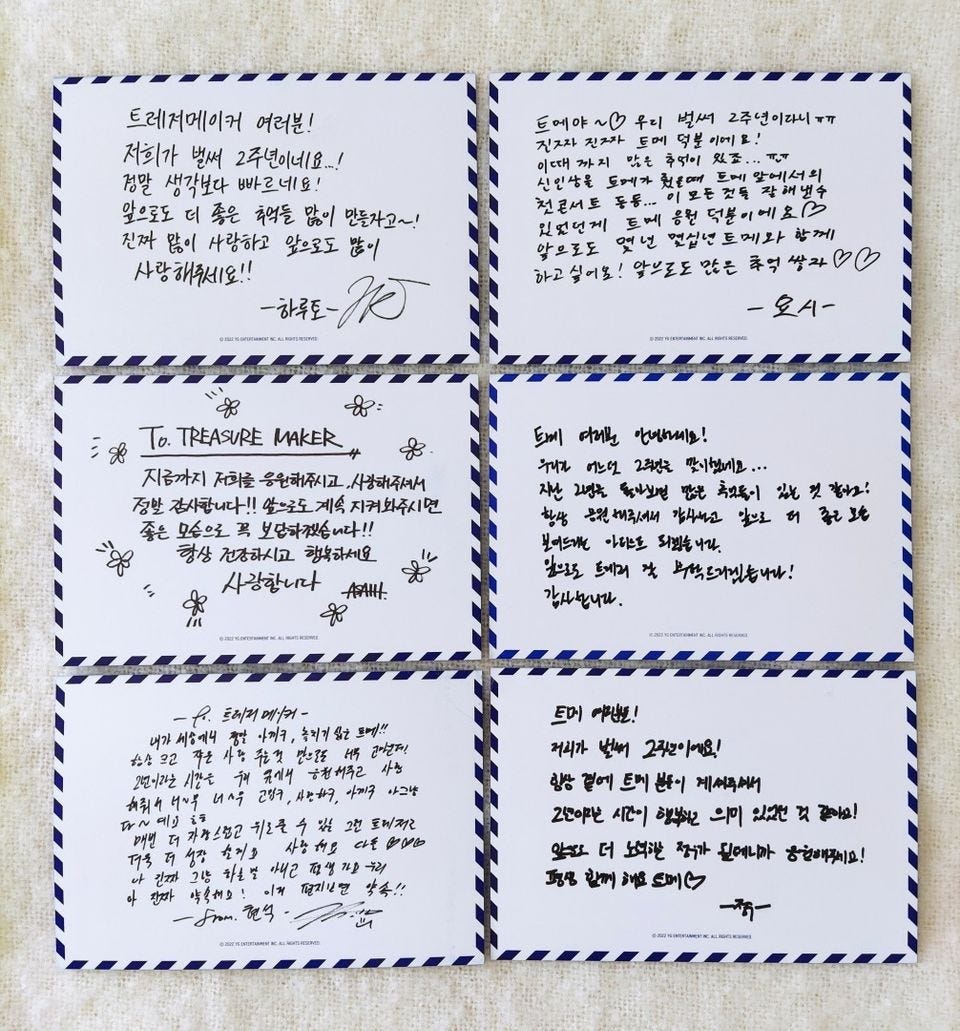 트레저메이커 여러분!
저희가 벌써 2주년이네요...!
정말 생각보다 빠르네요!
앞으로도 더 좋은 추억들 많이 만들자고~!
진짜 많이 사랑하고 앞으로도 많이
사랑해주세요!!
-하루토-
© 2022 YG ENTERTAINMENT INC. ALL RIGHTS RESERVED.
트메야~♡ 우리 벌써 2주년이라니ㅠㅠ
진짜 진짜 트메 덕분이에요!
이때까지 많은 추억이 있죠...ㅠㅠ
신인상을 트메가 줬을때 트메 앞에서의
첫콘서트 등등... 이 모든 것들 잘 해낼수
있었던게 트메 응원 덕분이에요♡
앞으로도 몇년 몇십년 트메와 함께
하고싶어요! 앞으로도 많은 추억 쌓자♡♡
-요시-
© 2022 YG ENTERTAINMENT INC. ALL RIGHTS RESERVED.
To. TREASURE MAKER
지금까지 저희를 응원해주시고, 사랑해주셔서
정말 감사합니다!! 앞으로도 계속 지켜봐주시면
좋은 모습으로 꼭 보답하겠습니다!!
항상 건강하시고 행복하세요
사랑합니다
ASAHI.
© 2022 YG ENTERTAINMENT INC. ALL RIGHTS RESERVED.
트메 여러분 안녕하세요!
우리가 어느덧 2주년을 맞이했네요...
지난 2년을 돌아보면 많은 추억들이 있는 것 같아요!
항상 응원해주셔서 감사하고 앞으로 더 좋은 모습
보여드리는 아티스트 되겠습니다.
앞으로도 트메 잘 부탁드리겠습니다!
감사합니다.
© 2022 YG ENTERTAINMENT INC. ALL RIGHTS RESERVED.
-To. 트레저메이커-
내가 세상에서 정말 아끼고, 놓치기 싫은 트메!!
항상 크고 작은 사랑 주는것 만으로도 너무 고마운데!
2년이라는 시간을 우리 곁에서 응원해주고 사랑
해줘서 너~무 너~무 고맙고, 사랑하고, 아끼고
매번 더 자랑스럽고 위로를 줄 수 있는 그런 트레저로
더욱 더 성장 할게요 사랑해요 다들 ♡♡♡
나 진짜 그냥 평생 가요 우리
아 진짜 약속해요! 이거 편지보면 약속!!
-from. 현석-
© 2022 YG ENTERTAINMENT INC. ALL RIGHTS RESERVED.
트메 여러분!
저희가 벌써 2주년이에요!
항상 곁에 트메 분들이 계셔주셔서
2년이라는 시간이 행복하고 의미 있었던 것 같아요!
앞으로 더 노력할 정우가 될테니까 응원해주세요!
평생 함께 해요 트메♡
-정우-
© 2022 YG ENTERTAINMENT INC. ALL RIGHTS RESERVED.